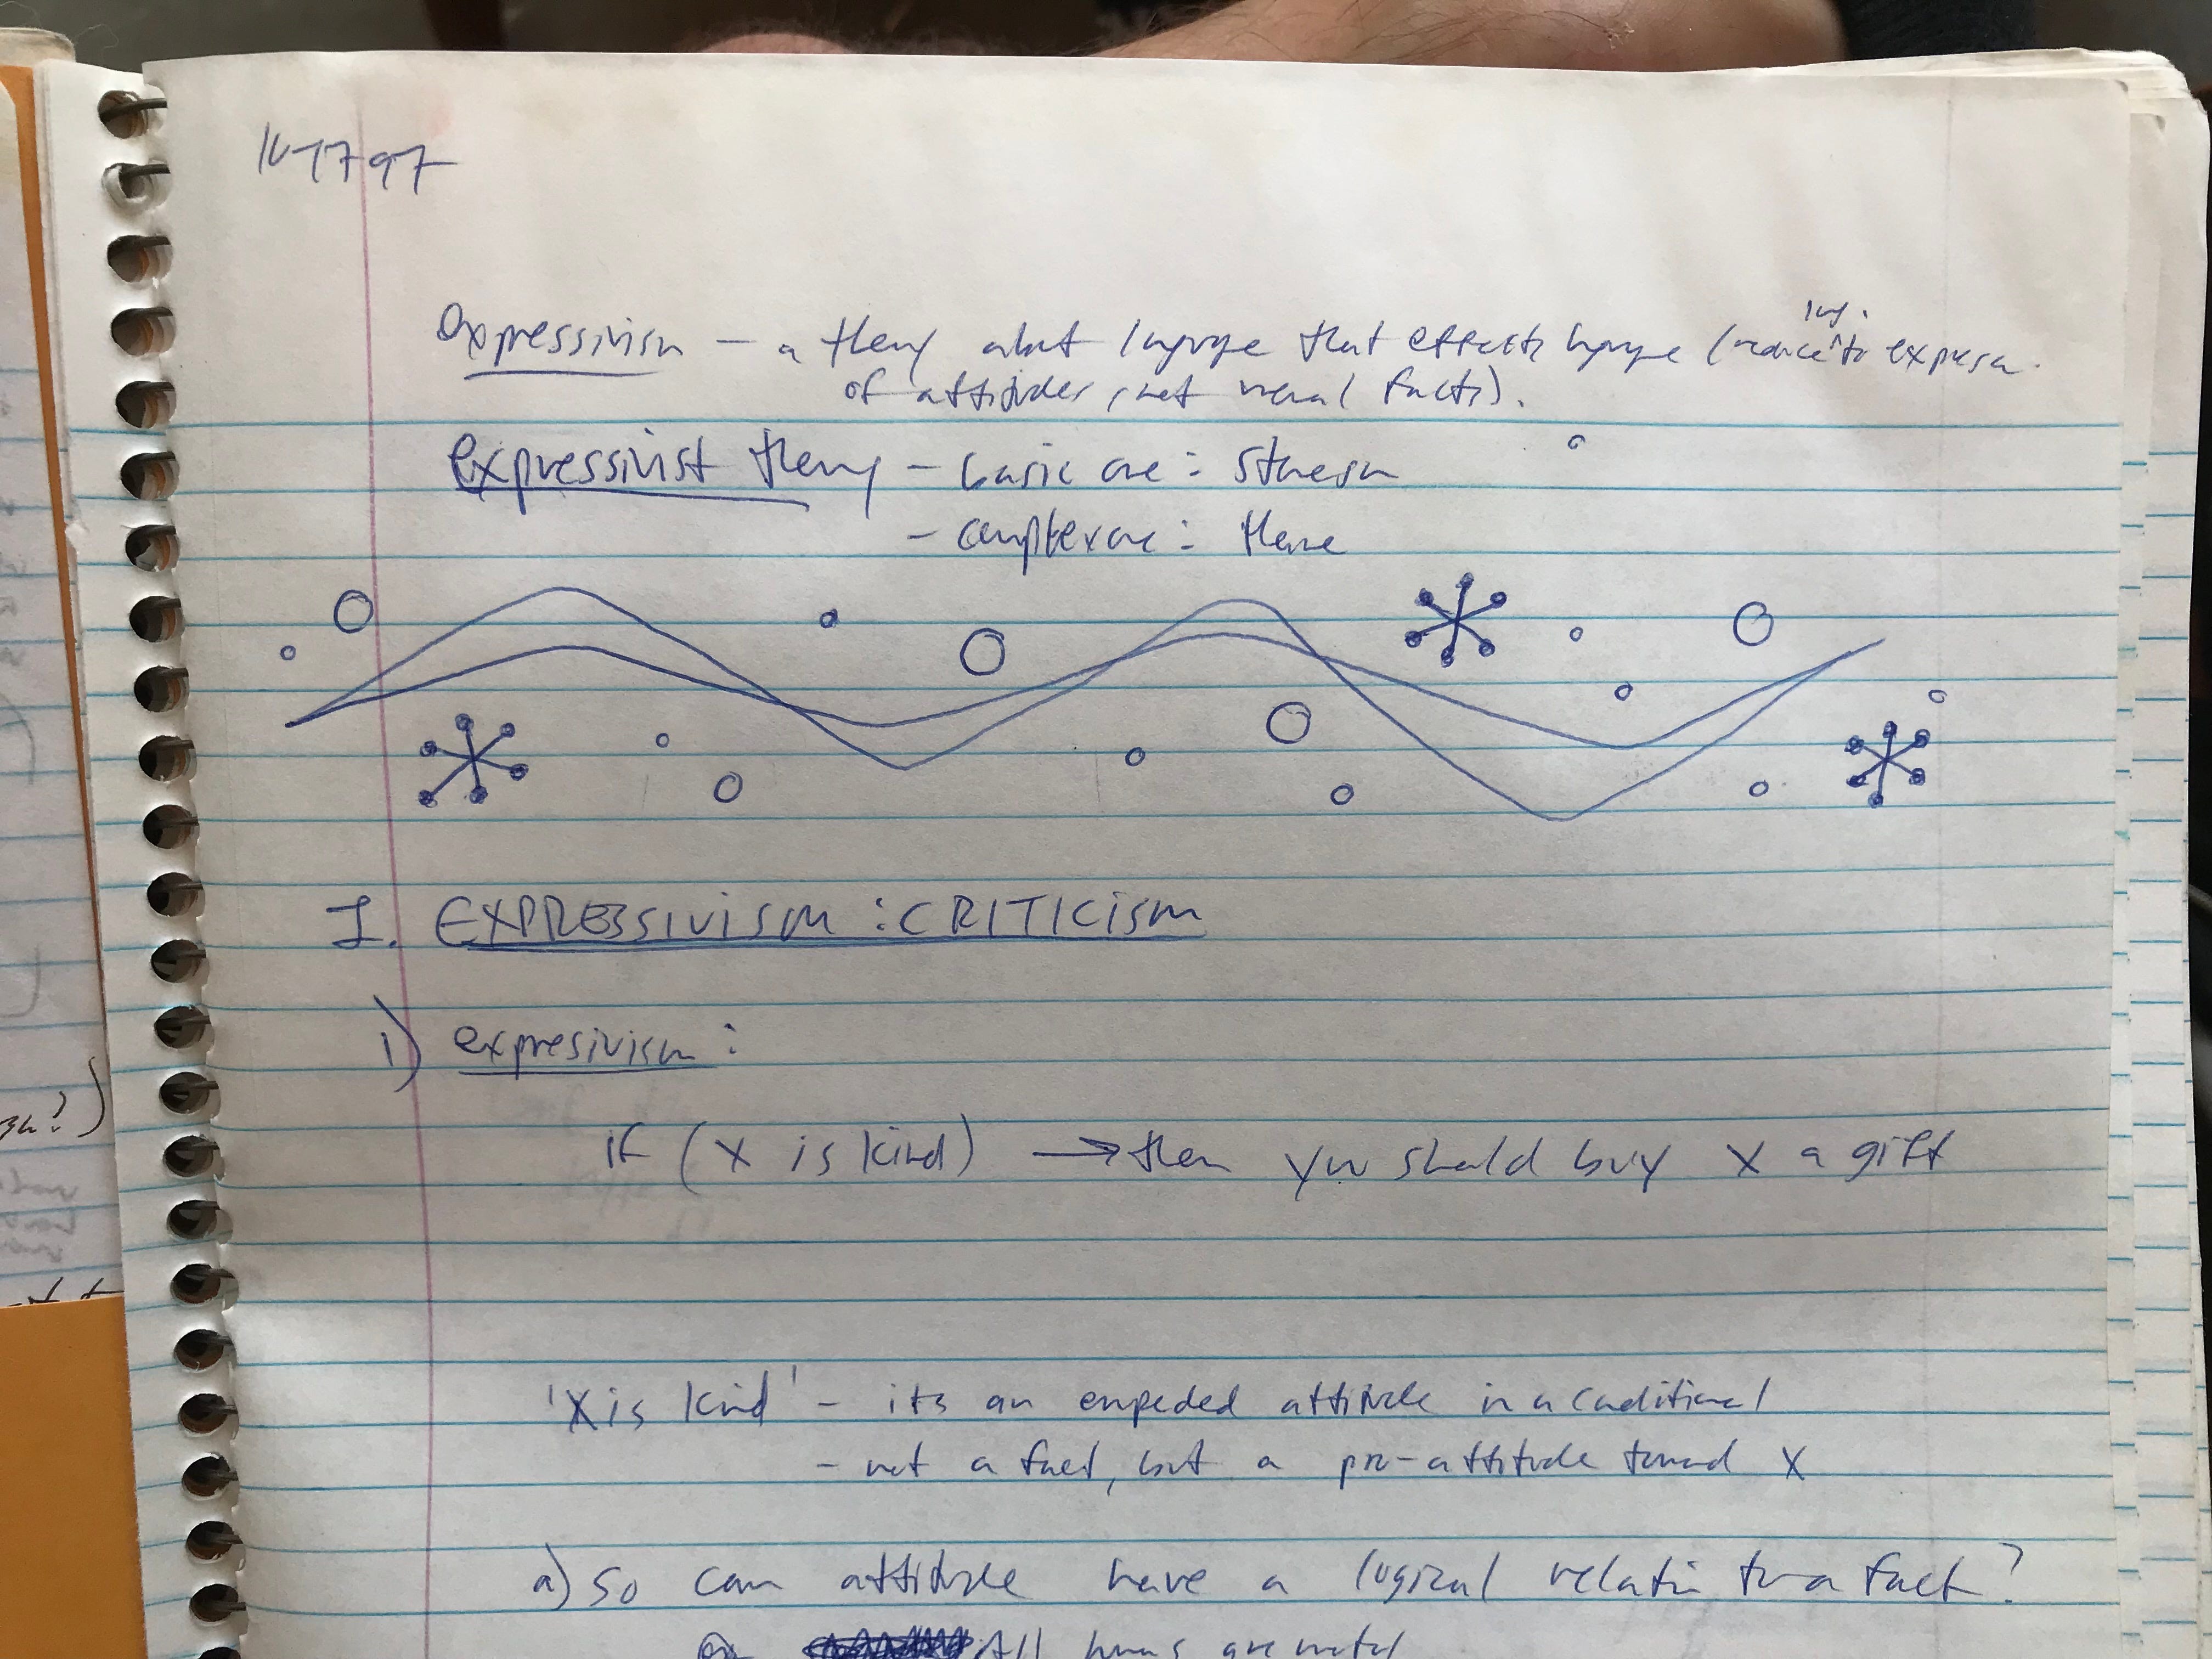 expressivism – a theory about language that effects language (reduce to express.
lang.
of attitudes, not moral facts).
expressivist theory – basic one: Stevenson
– complex one:
I. EXPRESSIVISM: CRITICISM
1) expresivism:
if (X is kind) → then you should buy X a gift
'X is kind' – its an empeded attitude in a conditional
– not a fact, but a pro-attitude toward X
a) so can attitude have a logical relation to a fact?
All humans are mortal